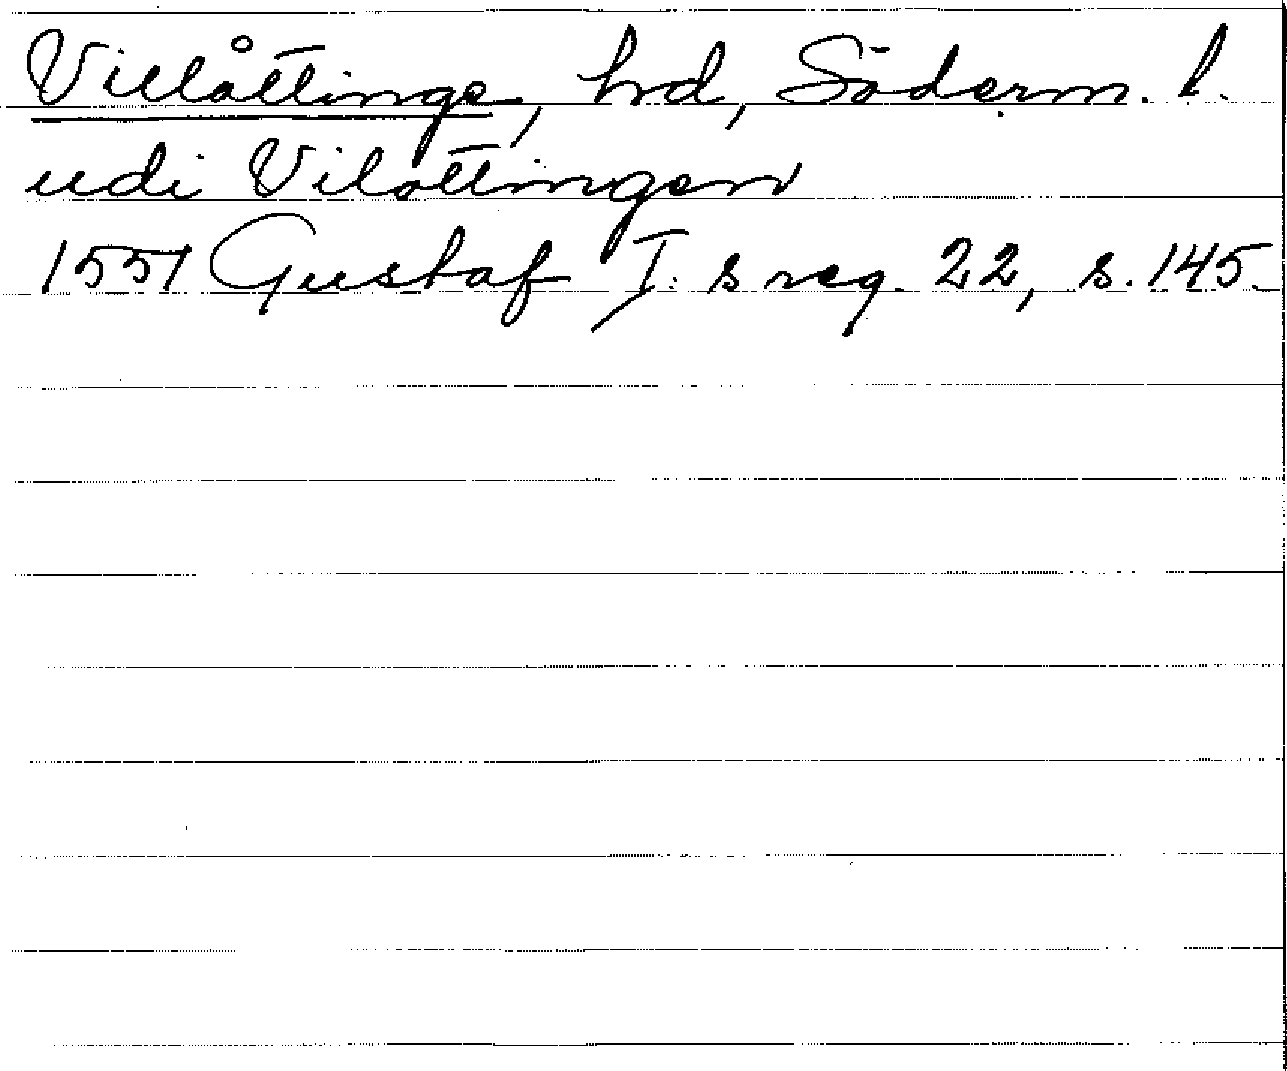 Villåttinge, hd, Söderm. l.
udi Vilottingen
1551 Gustaf I:s reg. 22, s. 145.